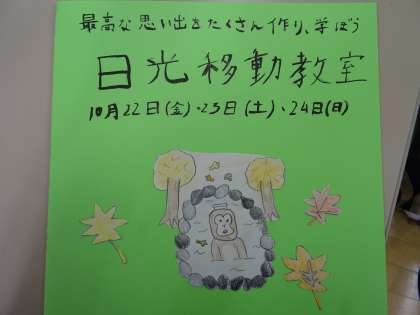 最高な思い出をたくさん作り、学ぼう
日光移動教室
10月22日(金)・23日(土)・24日(日)